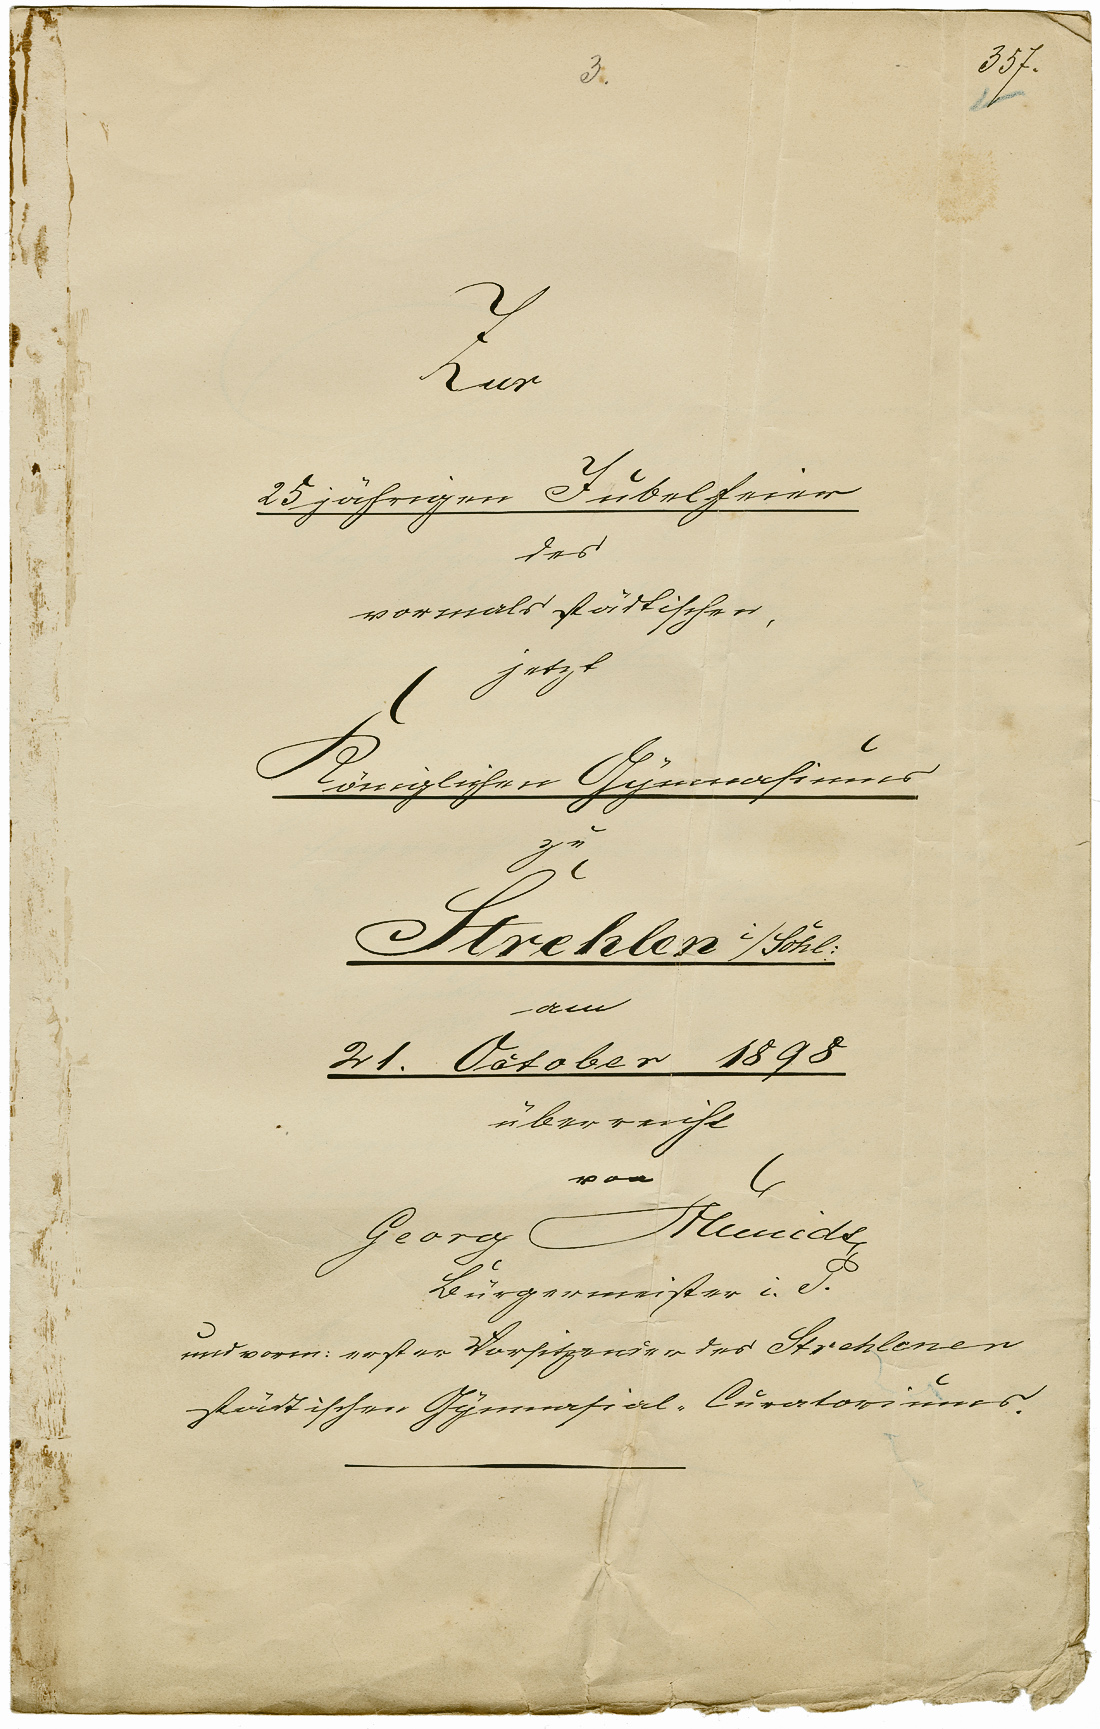 3.
357.
Zur
25jährigen Jubelfeier
des
vormals städtischen,
jetzt
Königlichen Gymnasiums
zu
Strehlen i/Schl:
am
21. October 1898
überreicht
von
Georg
Bürgermeister i. P.
und vorm: erster Vorsitzender des Strehlener
städtischen Gymnasial-Curatoriums.